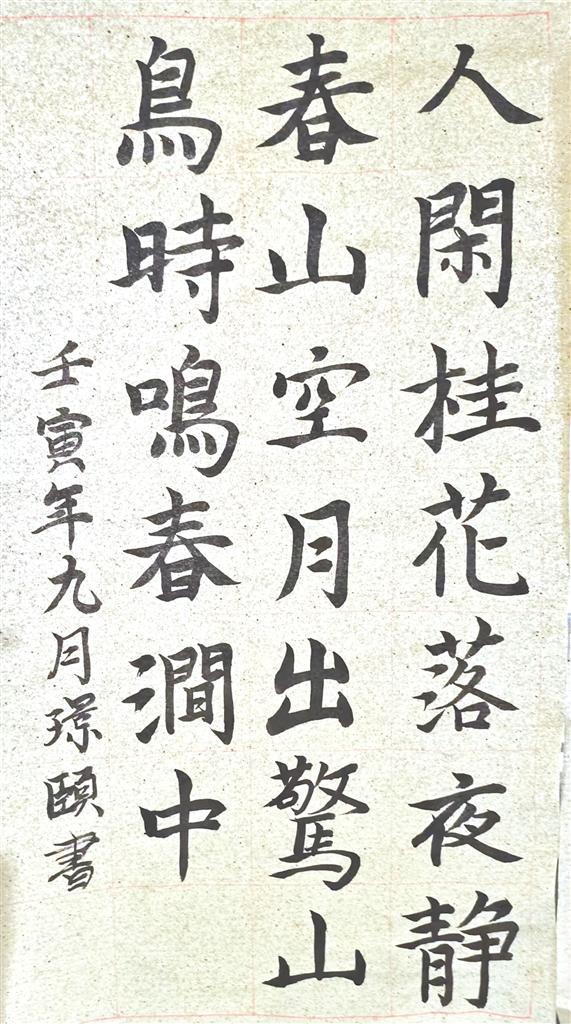 人閑桂花落夜静
春山空月出驚山
鳥時鳴春澗中
壬寅年九月璟頤書